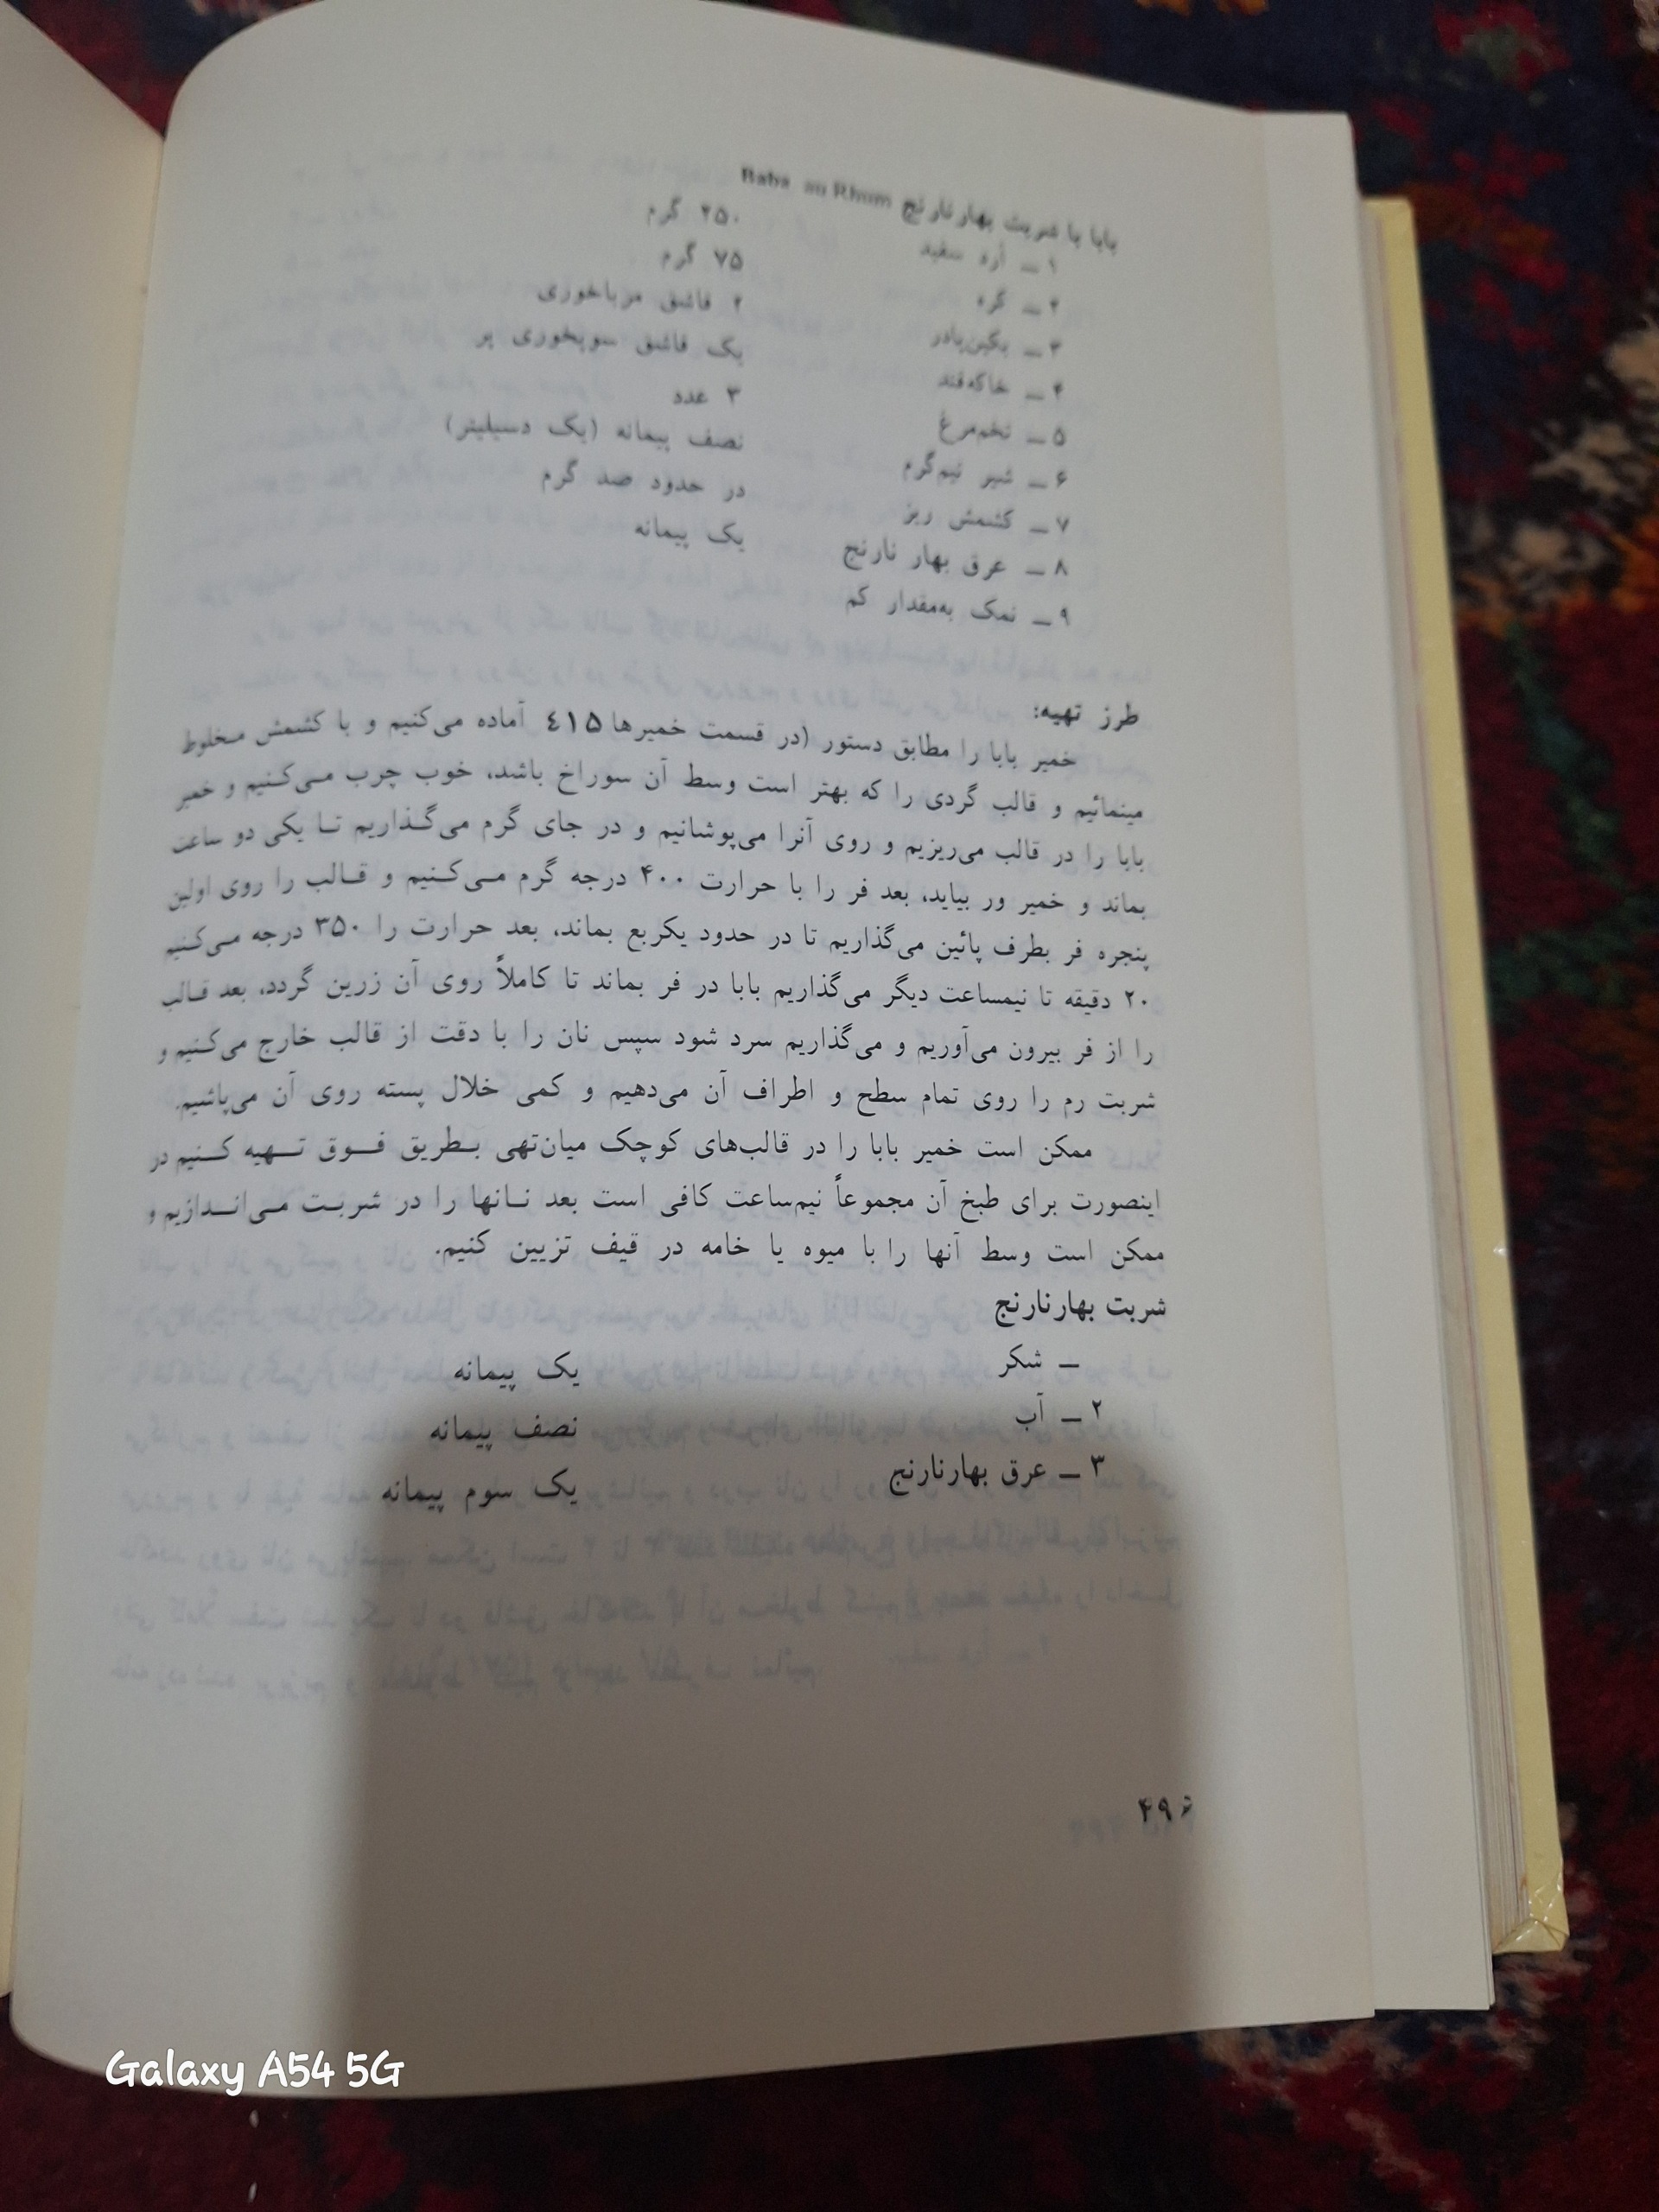 بابا با شربت بهارنارنج Baba au Rhum
۱ــ آرد سفید ۲۵۰ گرم
۲ــ کره ۷۵ گرم
۳ــ بکین‌پادر ۲ قاشق مرباخوری
۴ــ خاکه‌قند یک قاشق سوپخوری پر
۵ــ تخم‌مرغ ۳ عدد
۶ــ شیر نیم‌گرم نصف پیمانه (یک دسیلیتر)
۷ــ کشمش ریز در حدود صد گرم
۸ــ عرق بهار نارنج یک پیمانه
۹ــ نمک به‌مقدار کم
طرز تهیه:
خمیر بابا را مطابق دستور (در قسمت خمیرها ٤١٥ آماده می‌کنیم و با کشمش مخلوط
مینمائیم و قالب گردی را که بهتر است وسط آن سوراخ باشد، خوب چرب می‌کنیم و خمیر
بابا را در قالب می‌ریزیم و روی آنرا می‌پوشانیم و در جای گرم می‌گذاریم تا یکی دو ساعت
بماند و خمیر ور بیاید، بعد فر را با حرارت ۴۰۰ درجه گرم می‌کنیم و قالب را روی اولین
پنجره فر بطرف پائین می‌گذاریم تا در حدود یکربع بماند، بعد حرارت را ۳۵۰ درجه می‌کنیم
۲۰ دقیقه تا نیمساعت دیگر می‌گذاریم بابا در فر بماند تا کاملاً روی آن زرین گردد، بعد قالب
را از فر بیرون می‌آوریم و می‌گذاریم سرد شود سپس نان را با دقت از قالب خارج می‌کنیم و
شربت رم را روی تمام سطح و اطراف آن می‌دهیم و کمی خلال پسته روی آن می‌پاشیم.
ممکن است خمیر بابا را در قالب‌های کوچک میان‌تهی بطریق فوق تهیه کنیم در
اینصورت برای طبخ آن مجموعاً نیم‌ساعت کافی است بعد نانها را در شربت می‌اندازیم و
ممکن است وسط آنها را با میوه یا خامه در قیف تزیین کنیم.
شربت بهارنارنج
ــ شکر یک پیمانه
۲ــ آب نصف پیمانه
۳ــ عرق بهارنارنج یک سوم پیمانه
۴۹۶
Galaxy A54 5G